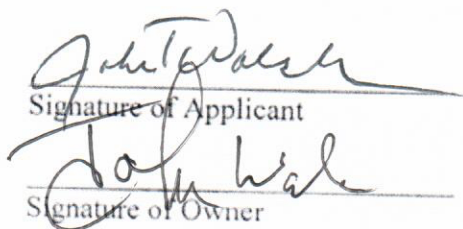 John T. Walsh
Signature of Applicant
John Walsh
Signature of Owner